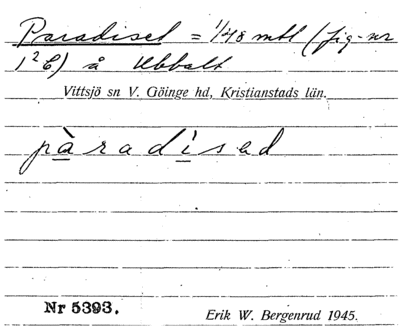 Paradiset = 1/48 mtl (jig-nr
1²C) å Ubbalt
Vittsjö sn V. Göinge hd, Kristianstads län.
pàradìsəd
Nr 5393.
Erik W. Bergenrud 1945.